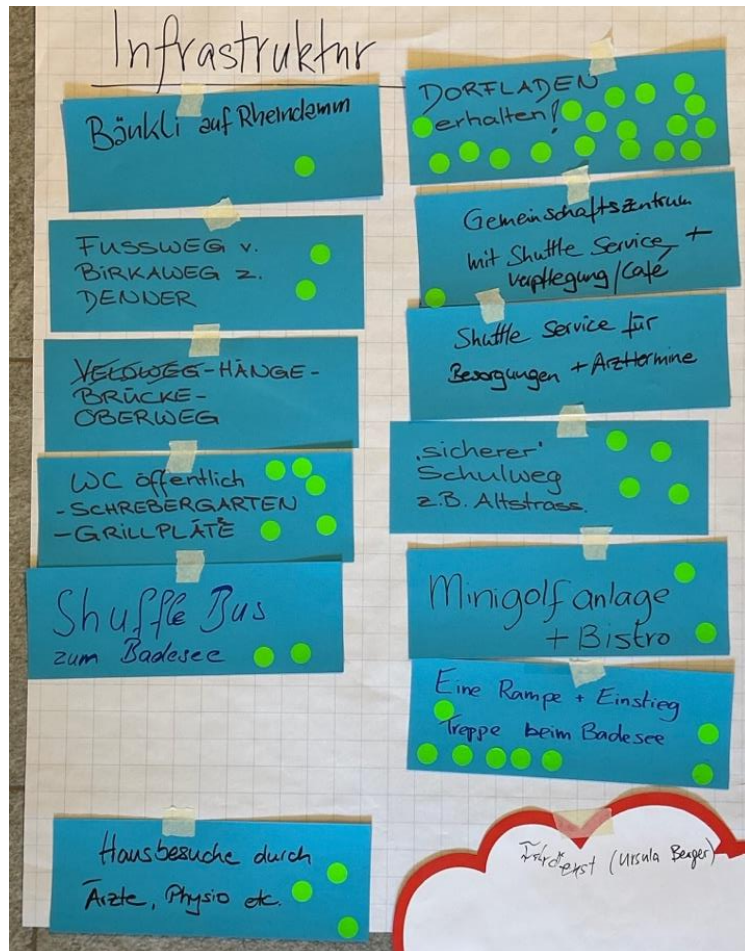 Infrastruktur
Bänkli auf Rheindamm
FUSSWEG v.
BIRKAWEG z.
DENNER
VELOWEG-HÄNGE-
BRÜCKE-
OBERWEG
WC öffentlich
-SCHREBERGARTEN
-GRILLPLÄTZE
Shuffle Bus
zum Badesee
Hausbesuche durch
Ärzte, Physio etc.
DORFLADEN
erhalten!
Gemeinschaftszentrum
mit Shuttle Service +
Verpflegung/Café
Shuttle Service für
Besorgungen + Arzttermine
'sicherer'
Schulweg
z.B. Altstrass.
Minigolfanlage
+ Bistro
Eine Rampe + Einstieg
Treppe beim Badesee
(Ursula Berger)